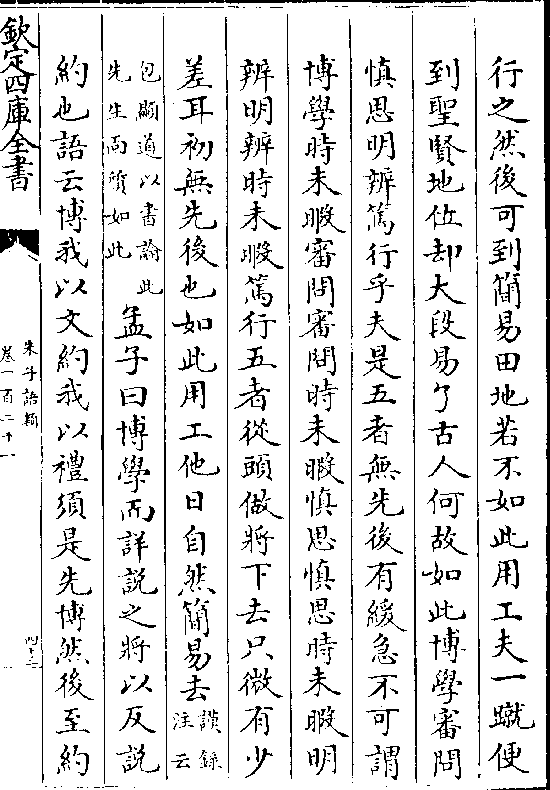 行之然後可到簡易田地若不如此用工夫一蹴便
到聖賢地位却大段易了古人何故如此博學審問
慎思明辨篤行乎夫是五者無先後有緩急不可謂
博學時未暇審問審問時未暇慎思慎思時未暇明
辨明辨時未暇篤行五者從頭做將下去只微有少
差耳初無先後也如此用工他日自然簡易去謨録
注云
包顯道以書論此
先生面質如此
孟子曰博學而詳說之將以反說
約也語云博我以文約我以禮須是先博然後至約
欽定四庫全書
朱子語類
卷一百二十一
四十三